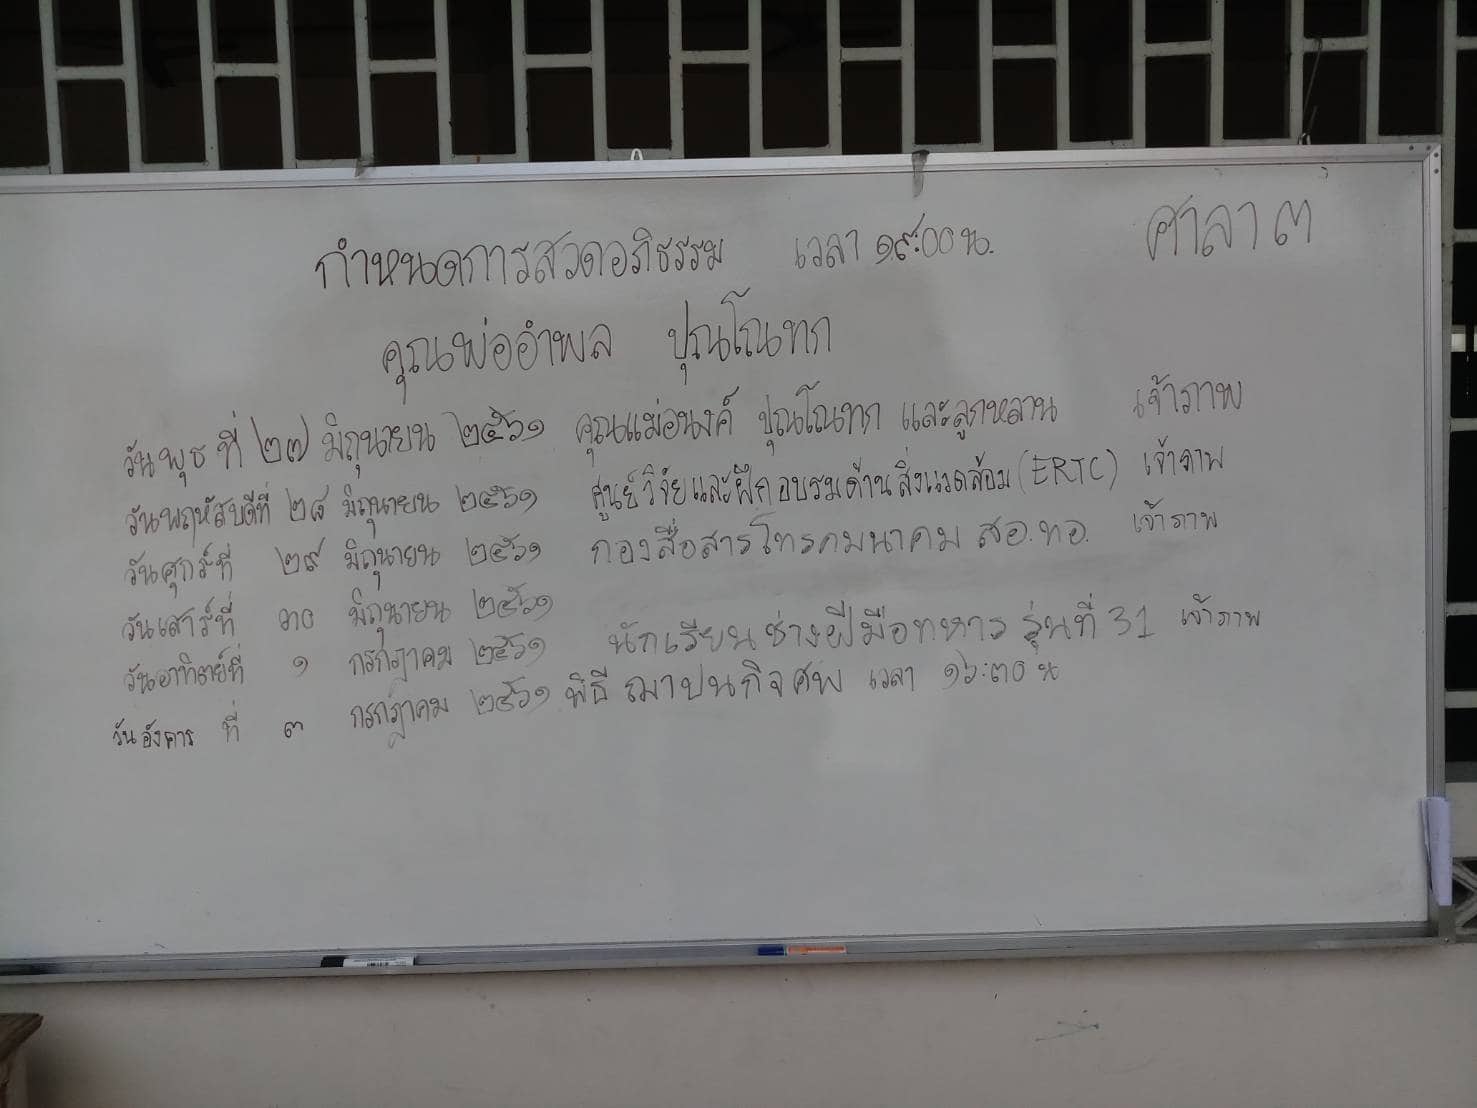 ศาลา ๓
กำหนดการสวดอภิธรรม เวลา ๑๙:๐๐ น.
คุณพ่ออำพล ปุณโณทก
วันพุธ ที่ ๒๗ มิถุนายน ๒๕๖๑ คุณแม่อนงค์ ปุณโณทก และลูกหลาน เจ้าภาพ
วันพฤหัสบดีที่ ๒๘ มิถุนายน ๒๕๖๑ ศูนย์วิจัยและฝึกอบรมด้านสิ่งแวดล้อม (ERTC) เจ้าภาพ
วันศุกร์ที่ ๒๙ มิถุนายน ๒๕๖๑ กองสื่อสารโทรคมนาคม สอ.ทอ. เจ้าภาพ
วันเสาร์ที่ ๓๐ มิถุนายน ๒๕๖๑
วันอาทิตย์ที่ ๑ กรกฎาคม ๒๕๖๑ นักเรียนช่างฝีมือทหาร รุ่นที่ 31 เจ้าภาพ
วันอังคาร ที่ ๓ กรกฎาคม ๒๕๖๑ พิธี ฌาปนกิจศพ เวลา ๑๖:๓๐ น